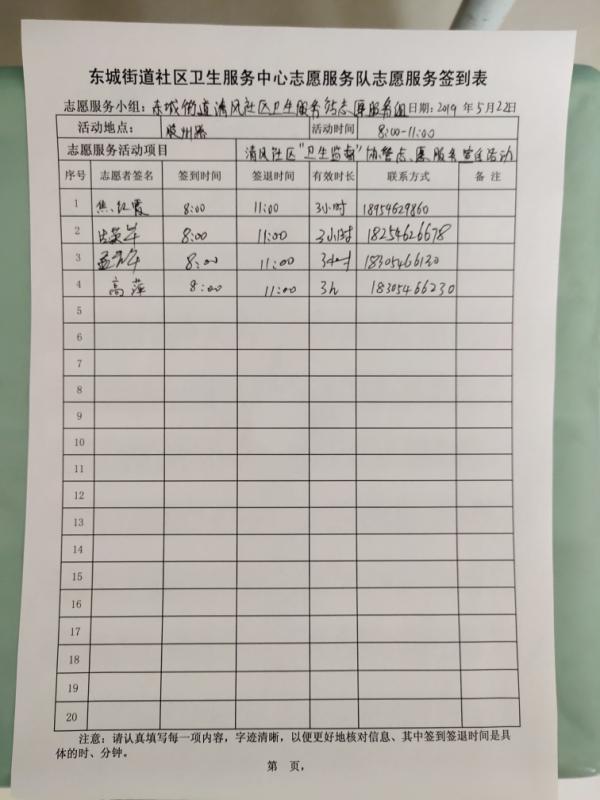 东城街道社区卫生服务中心志愿服务队志愿服务签到表
志愿服务小组：东城街道清风社区卫生服务站志愿服务组 日期：2019 年 5月22日
活动地点： 胶州路 活动时间 8:00-11:00
志愿服务活动项目 清风社区"卫生监督"协管志愿服务宣传活动
序号 志愿者签名 签到时间 签退时间 有效时长 联系方式 备 注
1 焦红霞 8:00 11:00 3小时 18954629860
2 8:00 11:00 3小时 18254626678
3 8:00 11:00 3小时 18305466130
4 高萍 8:00 11:00 3h 18305466230
5
6
7
8
9
10
11
12
13
14
15
16
17
18
19
20
注意：请认真填写每一项内容，字迹清晰，以便更好地核对信息、其中签到签退时间是具
体的时、分钟。
第 页，